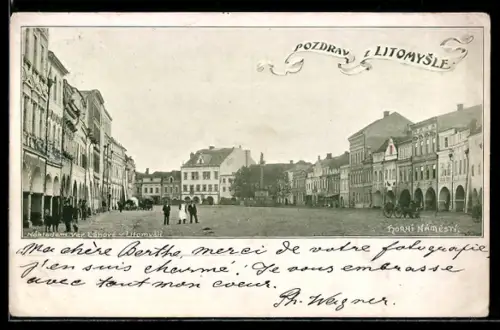 POZDRAV z LITOMYŠLE.
Nákladem Ver. Čáňové - Litomyšl
HORNÍ NÁMĚSTÍ.
Ma chère Berthe, merci de votre fotografie
j'en suis charmé! Je vous embrasse
avec tout mon coeur.
Ph. Wagner.